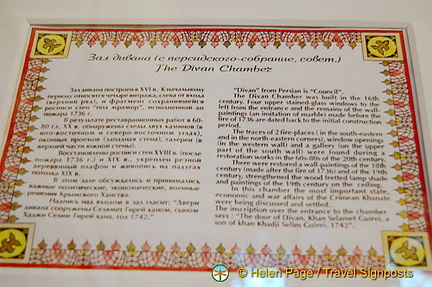 Зал дивана (с персидского-собрание, совет.)
The Divan Chamber
Зал дивана построен в XVI в. К начальному
периоду относятся четыре витража, слева от входа
(верхний ряд), и фрагмент сохранившейся
росписи стен "под мрамор", исполненной до
пожара 1736 г.
В результате реставрационных работ в 60-
80 г.г. XX в. обнаружены следы двух каминов (в
юго-восточном и северо-восточном углах),
оконных проемов (западная стена), галереи (в
верхней части южной стены).
Восстановлены росписи стен XVIII в. (после
пожара 1736 г.) и XIX в., укреплен резной
деревянный плафон и живопись на падугах
потолка XIX в.
В этом зале обсуждались и принимались
важные политические, экономические, военные
решения Крымского Ханства.
Надпись над входом в зал гласит: "Двери
дивана сооружены Селямет Гирей ханом, сыном
Хаджи Селим Гирей хана, год 1742."
"Divan" from Persian is "Council".
The Divan Chamber was built in the 16th
century. Four upper stained-glass windows to the
left from the entrance and the remains of the wall-
paintings (an imitation of marble) made before the
fire of 1736 are dated back to the initial construction
period.
The traces of 2 fire-places ( in the south-eastern
and in the north-eastern corners), window openings
(in the western wall) and a gallery (on the upper
part of the south wall) were found during a
restoration works in the 60s-80s of the 20th century.
There were restored a wall-paintings of the 18th
century (made after the fire of 1736) and of the 19th
century, strengthened the wood fretted lamp shade
and paintings of the 19th century on the ceiling.
In this chamber the most important state,
economic and war affairs of the Crimean Khanate
were being discussed and settled.
The inscription over the entrance to the chamber
says : "The door of Divan, Khan Selamet Guirei, a
son of khan Khadji Selim Guirei, 1742."
© Helen Page / Travel Signposts